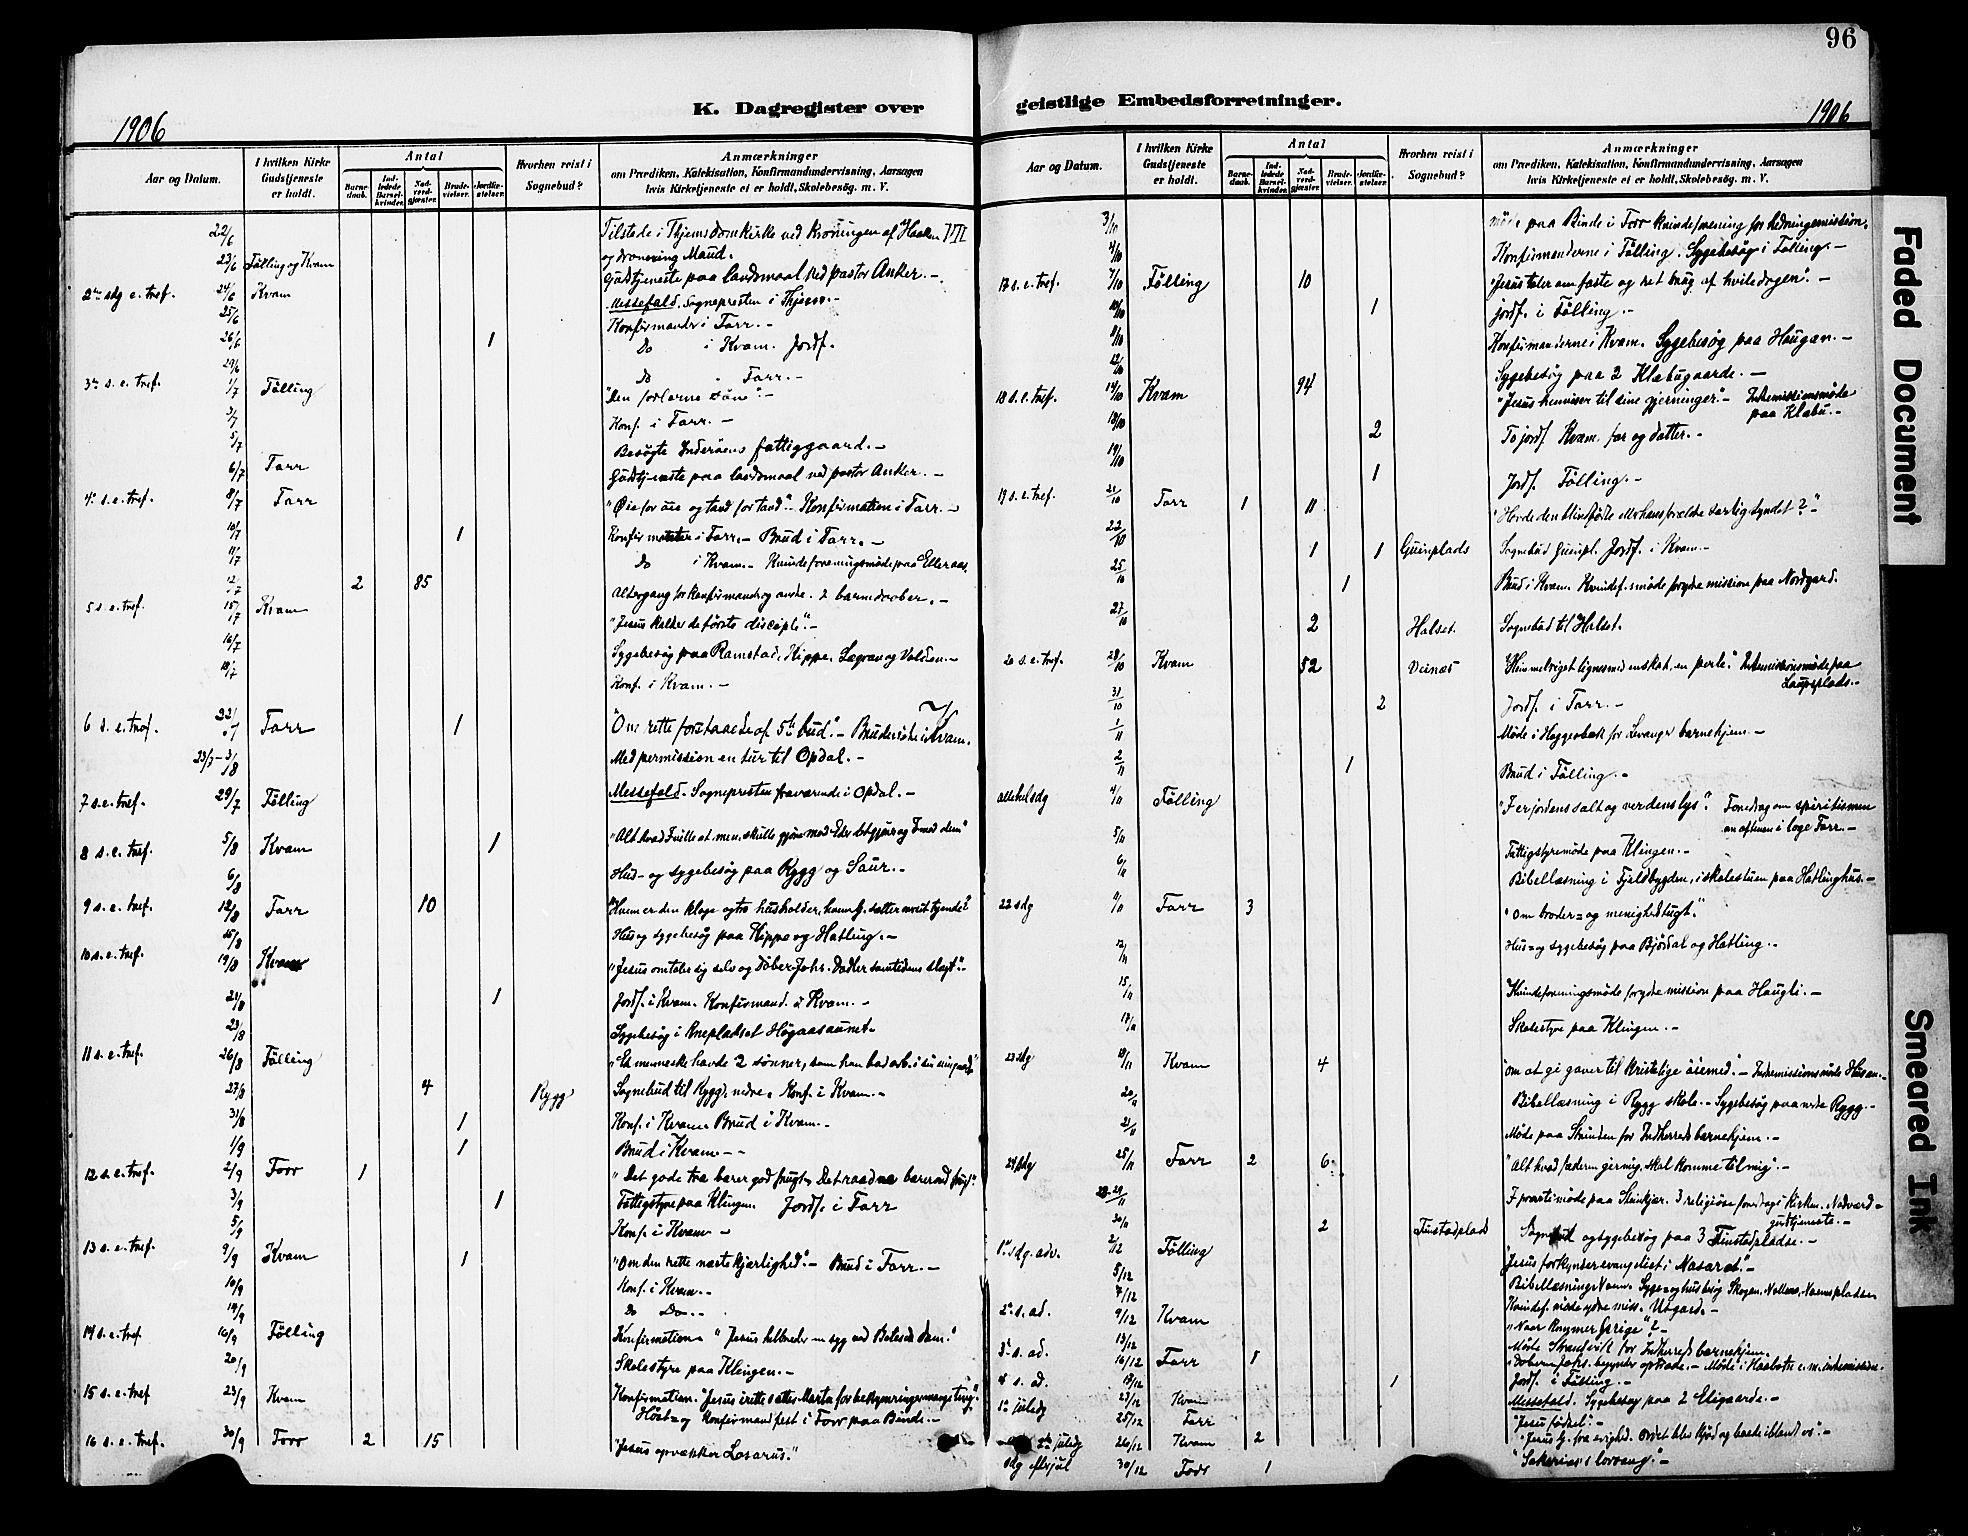 96
K. Dagregister over geistlige Embedsforretninger.
1906
1906
Aar og Datum.
I hvilken Kirke Gudstjeneste er holdt.
Antal
Barnedaab.
Indledede Barselkvinder.
Nadverdgjæster.
Brudevielser.
Jordfæstelser.
Hvorhen reist i Sognebud?
Anmærkninger
om Prædiken, Katekisation, Konfirmandundervisning, Aarsagen
hvis Kirketjeneste ei er holdt, Skolebesøg. m. V.
22/6 Tilstede i Thjems domkirke ved kroningen af Haakon VII
og dronning Maud.
23/6 Følling og Kvam Gudstjeneste paa landsmaal ved pastor Anker. -
2den sdg e. tref. 24/6 Kvam Messefald. Sognepresten i Thjem. -
25/6 Konfirmander i Forr. -
26/6 1 Do i Kvam. Jordf.
29/6 Do " Forr. -
3de s. e. tref. 1/7 Følling "Den forlorne søn". -
3/7 Konf. i Forr. -
5/7 Besøgte Inderøens fattiggaard. -
6/7 Forr Gudstjeneste paa landsmaal ved pastor Anker. -
4de s. e. tref. 8/7 Forr "Øie for øie og tand for tand". - Konfirmation i Forr. -
10/7 1 Konfirmanter i Forr. - Brud i Forr. -
11/7 Do i Kvam. - Kvindeforeningsmøde paa Elleraas.
12/7 2 85 Altergang for konfirmander og andre. 2 barnedaaber. -
5 s. e. tref. 15/7 Kvam "Jesus kalder de første disciple". -
16/7 Sygebesøg paa Ramstad, Kippe, Lægran og Volden. -
18/7 Konf. i Kvam. -
6 s. e. tref. 22/7 Forr 1 "Om rette forstaaelse af 5te bud". - i Kvam.
23/7 - 3/8 Med permission en tur til Opdal. -
7 s. e. tref. 29/7 Følling Messefald. Sognepresten fraværende i Opdal. -
8 s. e. tref. 5/8 Kvam 1 "Alt hvad I ville at menneskene skulle gjøre mod Eder det gjør og I mod dem"
6/8 Hus- og sygebesøg paa Rygg og Saur. -
9 s. e. tref. 12/8 Forr 10 "Hvem er den kloge og tro husholder,
15/8 Hus og sygebesøg paa Kippe og Hatling. -
10 s. e. tref. 19/8 Kvam "Jesus omtaler sig selv og Døber Johs. Dadler samtidens slægt". -
21/8 1 Jordf. i Kvam. Konfirmand. i Kvam. -
23/8 Sygebesøg i Høgaasaunet -
11 s. e. tref. 26/8 Følling "Et menneske havde 2 sønner, som han bad arb. i sin vingaard"
27/8 4 Rygg Sognebud til Rygg, nedre. Konf. i Kvam. -
31/8 1 Konf. i Kvam. Brud i Kvam. -
1/9 1 Brud i Kvam. -
12 s. e. tref. 2/9 Forr 1 "Det gode træ bærer god frugt. Det raadne bærer ond frugt".
3/9 1 Fattigstyre paa Klingen. Jordf. i Forr
5/9 Konf. i Kvam -
13 s. e. tref. 9/9 Kvam 1 "Om den rette næstekjærlighed". - Brud i Forr. -
10/9 Konf. i Kvam. -
14/9 Do Do. -
14 s. e. tref 16/9 Følling Konfirmation. "Jesus helbreder en syg ved Betesda dam."
20/9 Skolestyre paa Klingen. -
15 s. e. tref 23/9 Kvam Konfirmation. "Jesus irettesætter Marta for bekymring for mange ting".
Høst- og konfirmandfest i Forr paa Binde. -
16 s. e. tref. 30/9 Forr 2 15 "Jesus opvækker Lasarus."
Aar og Datum.
I hvilken Kirke Gudstjeneste er holdt.
Antal
Barnedaab.
Indledede Barselkvinder.
Nadverdgjæster.
Brudevielser.
Jordfæstelser.
Hvorhen reist i Sognebud?
Anmærkninger
om Prædiken, Katekisation, Konfirmandundervisning, Aarsagen
hvis Kirketjeneste ei er holdt, Skolebesøg. m. V.
3/10 møde paa Binde i Forr kvindeforening for hedningemission.
4/10 Konfirmanderne i Følling. Sygebesøg i Følling. -
17 s. e. tref. 7/10 Følling 10 "Jesus taler om faste og ret brug af hviledagen". -
10/10 1 jordf. i Følling. -
8/10 Konfirmanderne i Kvam. Sygebesøg paa Haugan. -
12/10 Sygebesøg paa 2 Klæbugaarde. -
18 s. e. tref. 14/10 Kvam 94 "Jesus henviser til sine gjerninger. - Indremissionsmøde
paa Klæbu. -
18/10 2 To jordf. Kvam, far og datter. -
19/10 1 Jordf. Følling. -
19 s. e. tref. 21/10 Forr 1 11 "Havde den blindfødte eller hans forældre særlig syndet?"
22/10 1 1 Guinplads Sognebud Guinpl. Jordf. i Kvam. -
25/10 1 Brud i Kvam. Kvindef.smøde for ydre mission paa Nordgard.
27/10 2 Halset. Sognebud til Halset.
20 s. e. tref. 28/10 Kvam 52 Veinæs "Himmelriget lignes med en skat, en perle." Indremissionsmøde paa
31/10 2 Jordf. i Forr. -
1/11 Møde i Heggesbæk for Levanger barnehjem. -
2/11 1 Brud i Følling. -
allehelsdg 4/11 Følling "I er jordens salt og verdens lys". Foredrag om spiritismen
om aftenen i loge Forr. -
5/11 Fattigstyremøde paa Klingen. -
6/11 Bibellæsning i Fjeldbygden, i skolestuen paa Hatlinghus. -
22 sdg 11/11 Forr 3 "Om broder- og menighedstugt."
12/11 Hus- og sygebesøg paa Bjørdal og Hatling. -
15/11 Kvindeforeningsmøde for ydre mission paa Haugli. -
17/11 Skolestyre paa Klingen. -
23 sdg 18/11 Kvam 4 "om at gi gaver til kristelige øiemed". - Indremissionsmøde Husan. -
20/11 Bibellæsning i Rygg skole. - Sygebesøg paa nedre Rygg. -
21/11 Møde paa Strinden for Indherreds barnehjem. -
24 sdg 25/11 Forr 2 6 "Alt hvad faderen gir mig, skal komme til mig". -
28-29/11 I præstemøde paa Stenkjær. 3 religiøse foredrag i kirken. Nadverd-
gudstjeneste. -
30/11 2 Finstadplads og sygebesøg paa 3 Finstadpladse. -
1ste sdg. adv. 2/12 Følling "Jesus forkynder evangeliet i Nasaret". -
5/12 Bibellæsning Naavn. Syge- og husbesøg Skogan,
7/12 Kvindef. møde ydre miss. Utgard. -
2den s. ad. 9/12 Kvam "Naar kommer Guds rige"? -
13/12 Møde for Indherreds barnehjem.
3de s. ad. 16/12 Forr 1 "Døberen Johs. begynder optræde. - Møde i Haabets e. m. indremission.
4 s. ad. 18/12 1 Jordf. i Følling. -
23/12 Kvam Messefald. Sygebesøg paa 2 Eligaarde. -
1ste juledg 25/12 Forr "Jesu fødsel". -
2den juledg 26/12 Kvam 2 "Jesus G. fra evighed. Ordet blev kjød og boede iblandt os". -
sdg efter jul 30/12 Forr 1 "Sakarias's lovsang". -
Faded Document
Smeared Ink